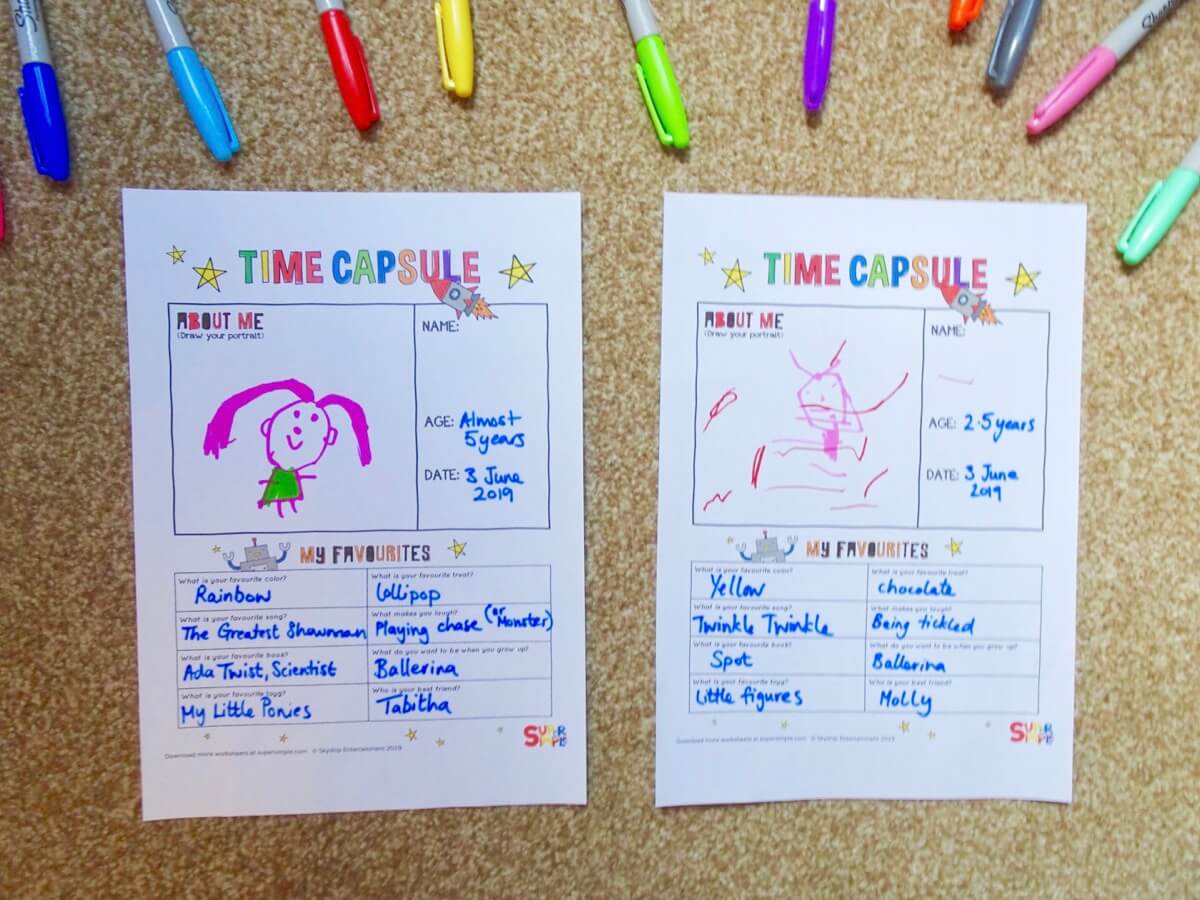 Sharpie
TIME CAPSULE
ABOUT ME
(Draw your portrait)
NAME:
AGE: Almost
5 years
DATE: 3 June
2019
MY FAVOURITES
What is your favourite color?
Rainbow
What is your favourite treat?
Lollipop
What is your favourite song?
The Greatest Showman
What makes you laugh?
Playing chase (or Monster)
What is your favourite book?
Ada Twist, Scientist
What do you want to be when you grow up?
Ballerina
What is your favourite toyg?
My Little Ponies
Who is your best friend?
Tabitha
SUPER
SIMPLE
Download more worksheets at supersimple.com. © Skyship Entertainment 2019
TIME CAPSULE
ABOUT ME
(Draw your portrait)
NAME:
AGE: 2.5 years
DATE: 3 June
2019
MY FAVOURITES
What is your favourite color?
Yellow
What is your favourite treat?
chocolate
What is your favourite song?
Twinkle Twinkle
What makes you laugh?
Being tickled
What is your favourite book?
Spot
What do you want to be when you grow up?
Ballerina
What is your favourite toyg?
Little figures
Who is your best friend?
Molly
SUPER
SIMPLE
Download more worksheets at supersimple.com. © Skyship Entertainment 2019